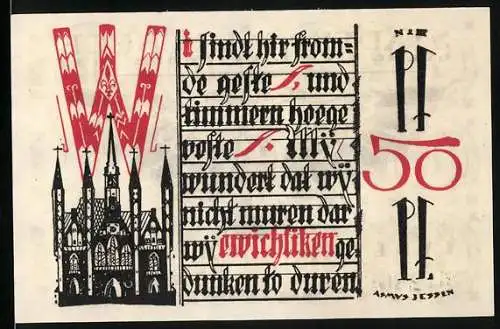 W
i sindt hir from-
de geste /, und
timmern hoege
veste /. Mÿ
wundert dat wÿ
nicht muren dar
wÿ ewichliken ge-
dunken to duren.
Pf
50
Pf
ASMUS JESSEN